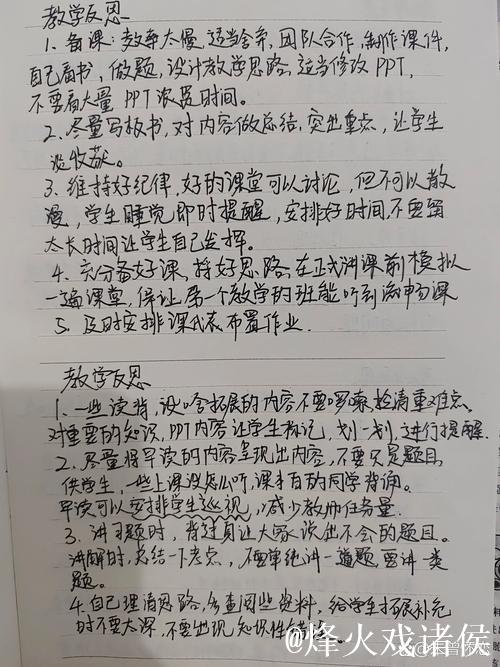 教学反思
1. 备课：效率太慢，适当舍弃，团队合作，制作课件，
自己看书，做题，设计教学思路，适当修改PPT，
不要看大量PPT浪费时间。
2. 尽量写板书，对内容做总结，突出重点，让学生
谈收获。
3. 维持好纪律，好的课堂可以讨论，但不可以散
漫，学生睡觉即时提醒，安排好时间，不要留
太长时间让学生自己发挥。
4. 充分备好课，捋好思路，在正式讲课前模拟
一遍课堂，保证第一个教学的班能听到流畅课
5. 及时安排课代表布置作业.
教学反思
1. 一些读背，没啥拓展的内容不要啰嗦，捡清重难点.
对重要的知识，PPT内容让学生标记，划一划，进行提醒.
2. 尽量将早读的内容呈现出内容，不要只是题目
供学生，一些上课没怎么听，课本空白的同学背诵。
早读可以安排学生巡视，减少教师任务量.
3. 讲习题时，背过身让大家说出不会的题目。
讲解时，总结一下考点，不要单纯讲一道题，要讲一类
题。
4. 自己理清思路，多查阅些资料，给学生拓展补充
时不要太深，不要出现知识性错误
@烽火戏诸侯